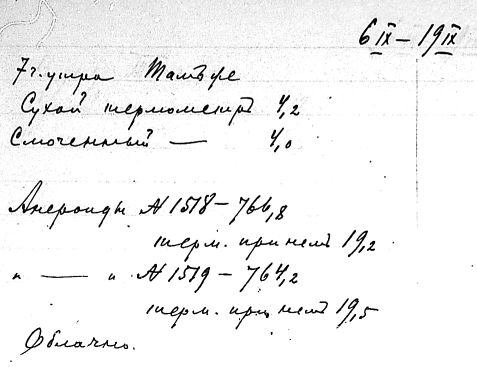 6 IX — 19 IX
7 ч. утра
Сухой термометръ 4,2
Смоченный — 4,0
Анероиды № 1518 — 766,8
терм. при немъ 19,2
" — " № 1519 — 764,2
терм. при немъ 19,5
Облачно.